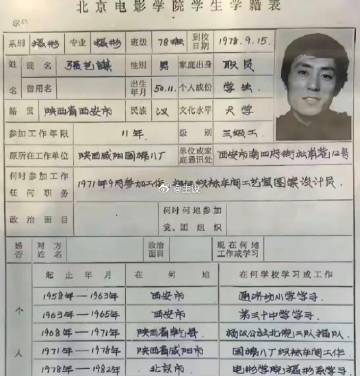 北京电影学院学生学籍表
系别 摄影 专业 摄影 班级 78摄 到校日期 1978.9.15.
姓名 现名 张艺谋 性别 男 家庭出身 职员
曾用名 出生年月 50.11. 个人成份 学生
籍贯 陕西省西安市 民族 汉 文化水平 大学
参加工作年限 11年 级别 三级工
原所在工作单位 陕西咸阳国棉八厂 单位或家庭通讯处 西安市南四府街 12号
何时参加工作任何职务 1971年9月参加工作, 织袜车间工艺室图案设计员
政治面目 何时何地参加党、团组织
婚否 对方姓名 政治面目 现在何地工作或学习
个人
起止年月 在何地 在何学校学习或工作
1958年—1963年 西安市 小学学习
1963年—1965年 西安市 第三十中学学习
1968年—1971年 陕西省乾县 杨汉公社北倪三队插队
1971年—1978年 陕西省咸阳市 国棉八厂织袜车间工作
1978年—1982年 北京市 电影学院摄影系学习